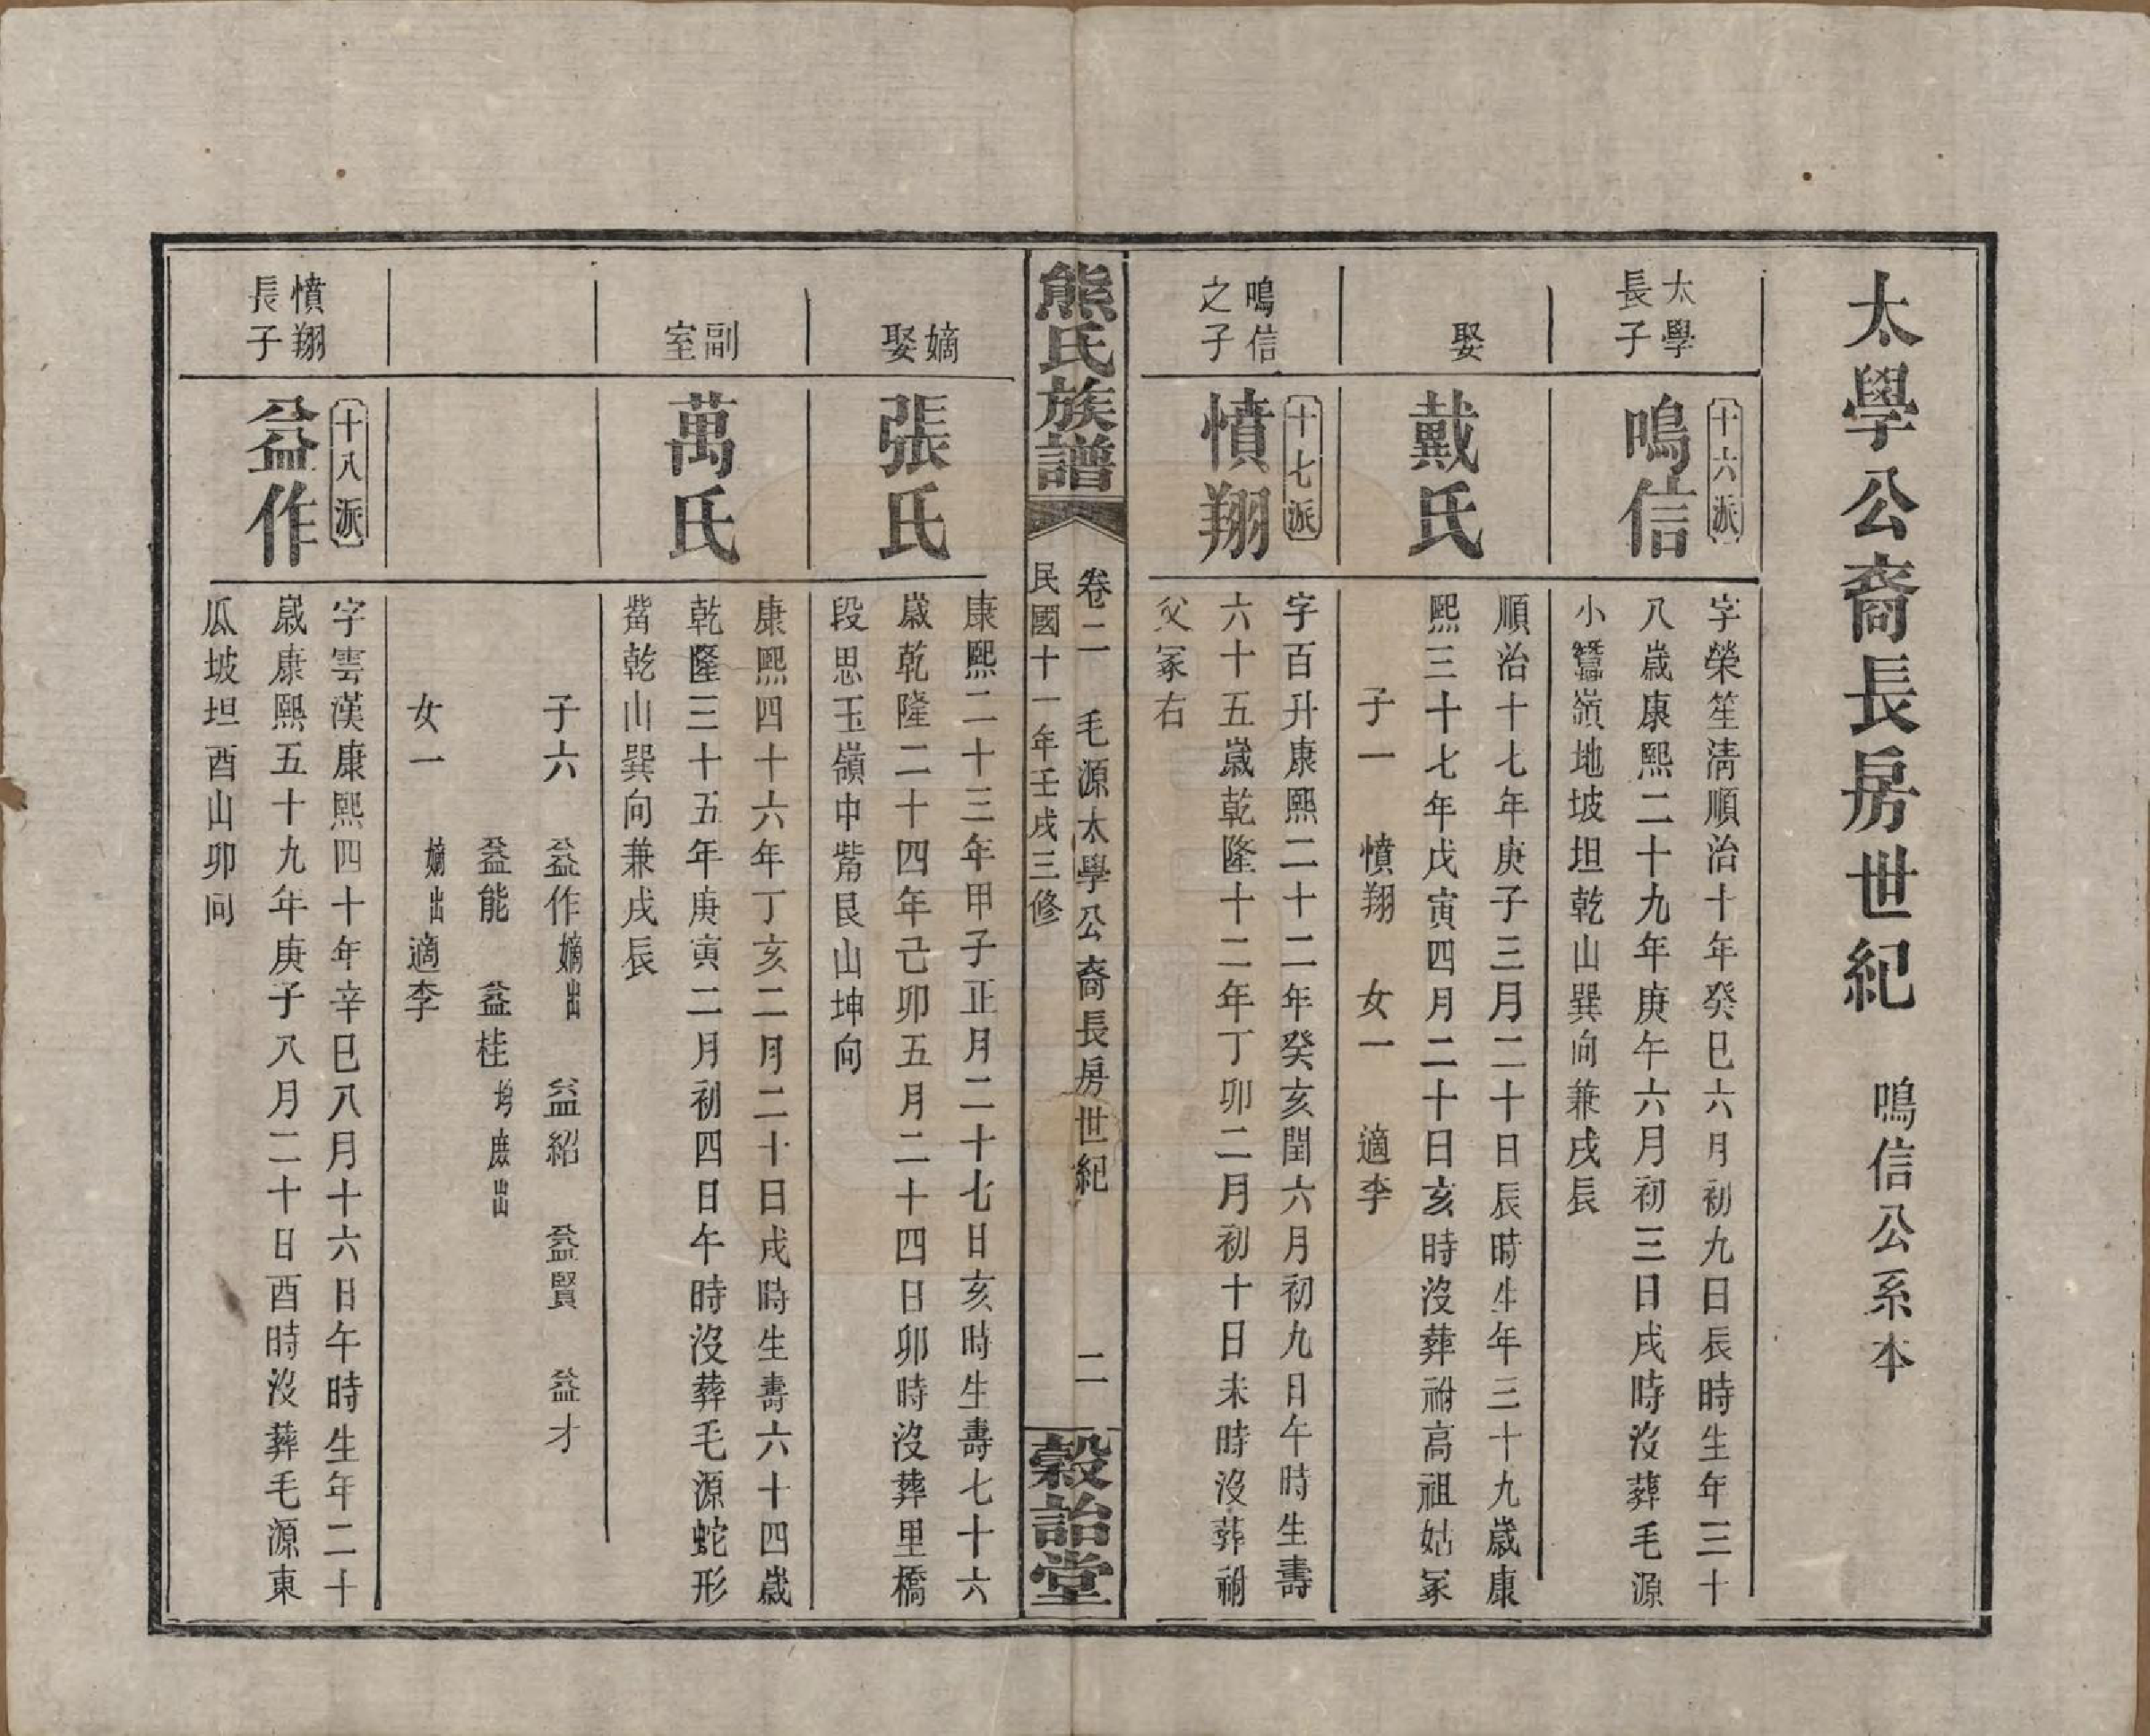 太學公裔長房世紀　鳴信公系本
太學
長子
十六派
鳴信
字榮笙淸順治十年癸巳六月初九日辰時生年三十
八歲康熙二十九年庚午六月初三日戌時沒葬毛源
小蠶嶺地坡坦乾山巽向兼戌辰
娶
戴氏
順治十七年庚子三月二十日辰時生年三十九歲康
熙三十七年戊寅四月二十日亥時沒葬祔高祖姑冢
子一　憤翔　女一　適李
鳴信
之子
十七派
憤翔
字百升康熙二十二年癸亥閏六月初九日午時生壽
六十五歲乾隆十二年丁卯二月初十日未時沒葬祔
父冢右
熊氏族譜
卷二　毛源太學公裔長房世紀　二
民國十一年壬戌三修
穀詒堂
嫡
娶
張氏
康熙二十三年甲子正月二十七日亥時生壽七十六
歲乾隆二十四年己卯五月二十四日卯時沒葬里橋
段思玉嶺中觜艮山坤向
副
室
萬氏
康熙四十六年丁亥二月二十日戌時生壽六十四歲
乾隆三十五年庚寅二月初四日午時沒葬毛源蛇形
觜乾山巽向兼戌辰
子六　益作嫡出　益紹　益賢　益才
益能　益桂均庶出
女一　嫡出適李
憤翔
長子
十八派
益作
字雲漢康熙四十年辛巳八月十六日午時生年二十
歲康熙五十九年庚子八月二十日酉時沒葬毛源東
瓜坡坦酉山卯向